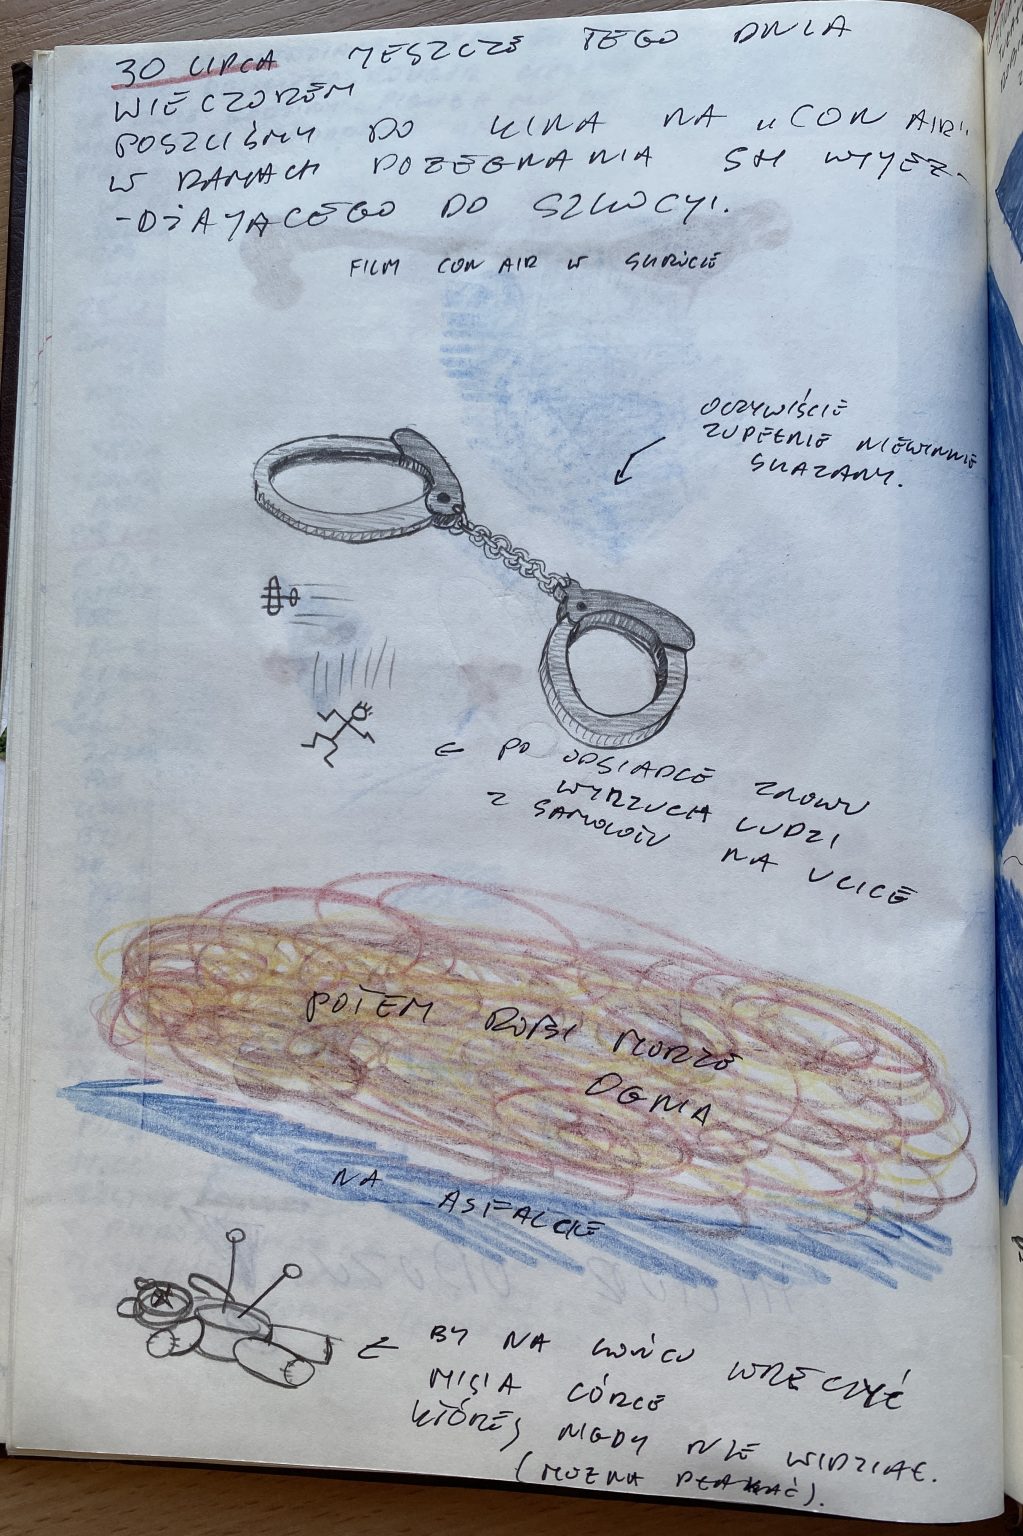 30 LIPCA JESZCZE TEGO DNIA
WIECZOREM
POSZLIŚMY DO KINA NA "CON AIR"
W RAMACH POŻEGNANIA SM WYJEŻ-
-DŻAJĄCEGO DO SZKOCJI.
FILM CON AIR W SKRÓCIE
OCZYWIŚCIE
ZUPEŁNIE NIEWINNIE
SKAZANY.
← PO ODSIADCE ZNOWU
WYRZUCA LUDZI
Z SAMOLOTU NA ULICĘ
POTEM ROBI MORZE
OGNIA
NA ASFALCIE
← BY NA KOŃCU WRĘCZYĆ
MISIA CÓRCE
KTÓREJ NIGDY NIE WIDZIAŁ.
(MOŻNA PŁAKAĆ).